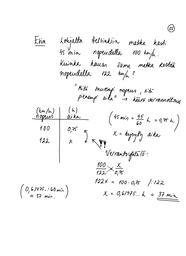 Esim Lohjalta Helsinkiin matka kesti
45 min nopeudella 100 km/h.
Kuinka kauan sama matka kestää
nopeudella 122 km/h?
"Kiti suurempi nopeus, sitä
pienempi aika" → kääntäen verrannolliset
(km/h) (h)
nopeus aika
100 0,75
122 x
(45 min = 45/60 h = 0,75 h)
x = kysytty aika
Verrantoyhtälö:
100/122 = x/0,75
122x = 100 · 0,75 /:122
x = 0,61475.. h = 37 min
(0,61475.. · 60 min)
= 37 min.